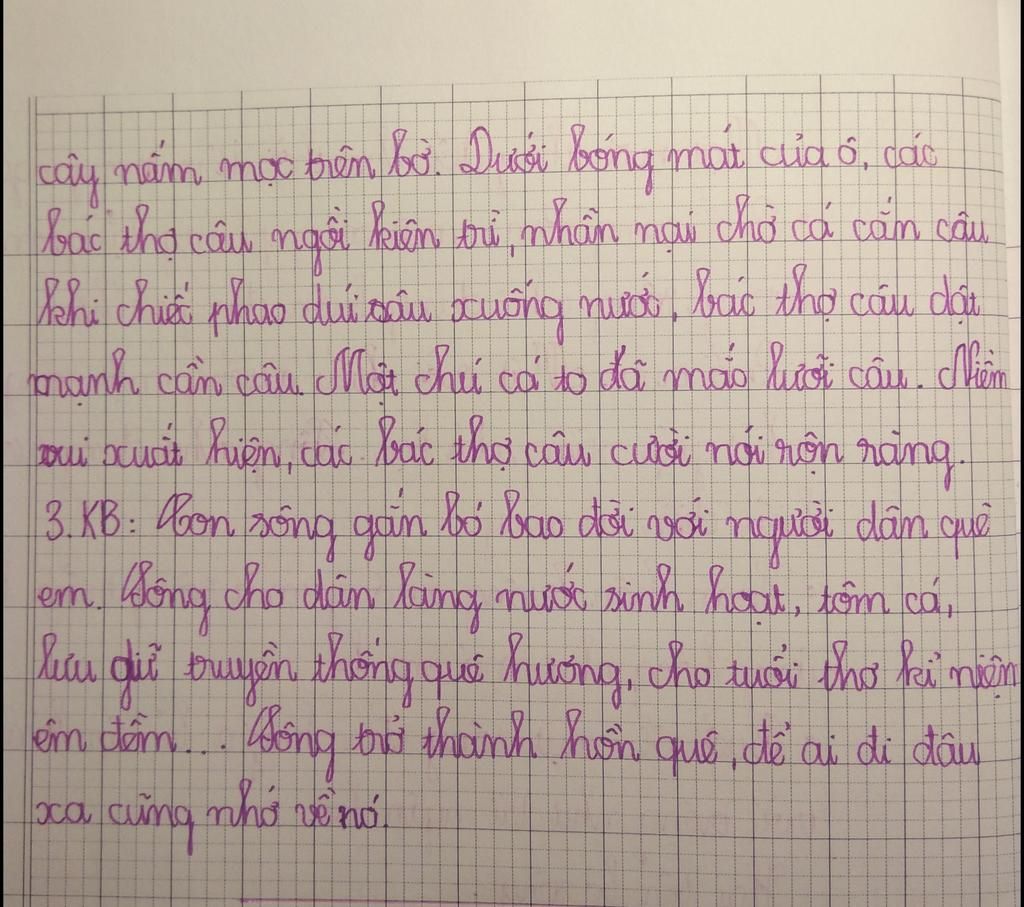 cây nấm mọc trên bờ. Dưới bóng mát của ô, các
bác thợ câu ngồi kiên trì, nhẫn nại chờ cá cắn câu
khi chiếc phao dúi sâu xuống nước, bác thợ câu dật
mạnh cần câu. Một chú cá to đã mắc lưỡi câu. Niềm
vui xuất hiện, các bác thợ câu cười nói rộn ràng.
3. KB: Con sông gắn bó bao đời với người dân quê
em. Sông cho dân làng nước sinh hoạt, tôm cá,
lưu giữ truyền thống quê hương, cho tuổi thơ kỉ niệm
êm đềm... Sông trở thành hồn quê, để ai đi đâu
xa cũng nhớ về nó.